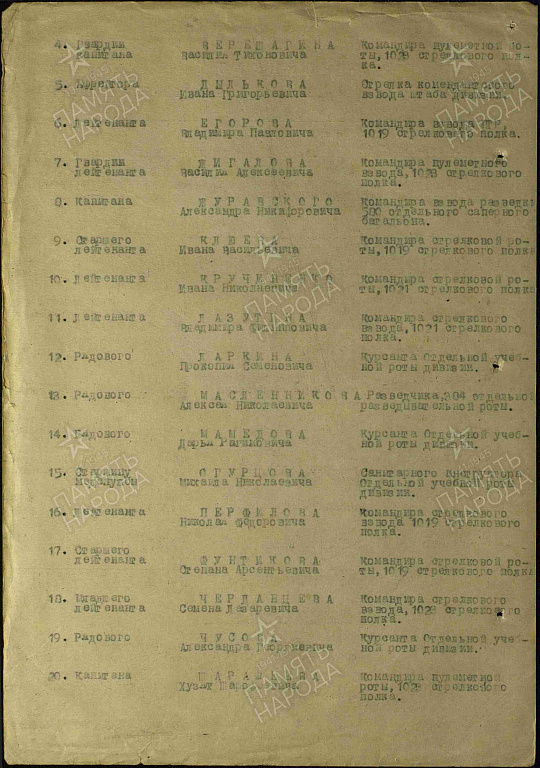 4. Гвардии В Е Р Е Щ А Г И Н А Командира пулеметной ро-
капитана Василия Тихоновича ты, 1028 стрелкового пол-
ка.
5. Ефрейтора Д Ы Л Ь К О В А Стрелка комендантского
Ивана Григорьевича взвода штаба дивизии.
6. Лейтенанта Е Г О Р О В А Командира взвода ПТР,
Владимира Павловича 1019 стрелкового полка.
7. Гвардии Ж И Г А Л О В А Командира пулеметного
лейтенанта Василия Алексеевича взвода, 1028 стрелкового
полка.
8. Капитана Ж У Р А В С К О Г О Командира взвода разведки
Александра Никифоровича 580 отдельного саперного
батальона.
9. Старшего К Л Ю Е В А Командира стрелковой ро-
лейтенанта Ивана Васильевича ты, 1019 стрелкового полка
10. Лейтенанта К Р У Ч Е Н Н О Г О Командира стрелковой ро-
Ивана Николаевича ты, 1021 стрелкового полка
11. Лейтенанта Л А З У Т И Н А Командира стрелкового
Владимира взвода, 1021 стрелкового
полка.
12. Рядового Л А Р К И Н А Курсанта Отдельной учеб-
Прокопия Семеновича ной роты дивизии.
13. Рядового М А С Л Е Н Н И К О В А Разведчика, 304 отдельной
Алексея Николаевича разведывательной роты.
14. Рядового М А М Е Д О В А Курсанта Отдельной учеб-
Рагимовича ной роты дивизии.
15. Старшину О Г У Р Ц О В А Санитарного инструктора
медслужбы Михаила Николаевича Отдельной учебной роты
дивизии.
16. Лейтенанта П Е Р Ф И Л О В А Командира стрелкового
Николая Федоровича взвода 1019 стрелкового
полка.
17. Старшего Ф У Н Т И К О В А Командира стрелковой ро-
лейтенанта Степана Арсентьевича ты, 1019 стрелкового полка
18. Младшего Ч Е Р Л А Н Ц Е В А Командира стрелкового
лейтенанта Семена Лазаревича взвода, 1028 стрелкового
полка.
19. Рядового Ч У С О В А Курсанта Отдельной учеб-
Александра Георгиевича ной роты дивизии.
20. Капитана Командира пулеметной
роты, 1028 стрелкового
полка.
ПАМЯТЬ
НАРОДА